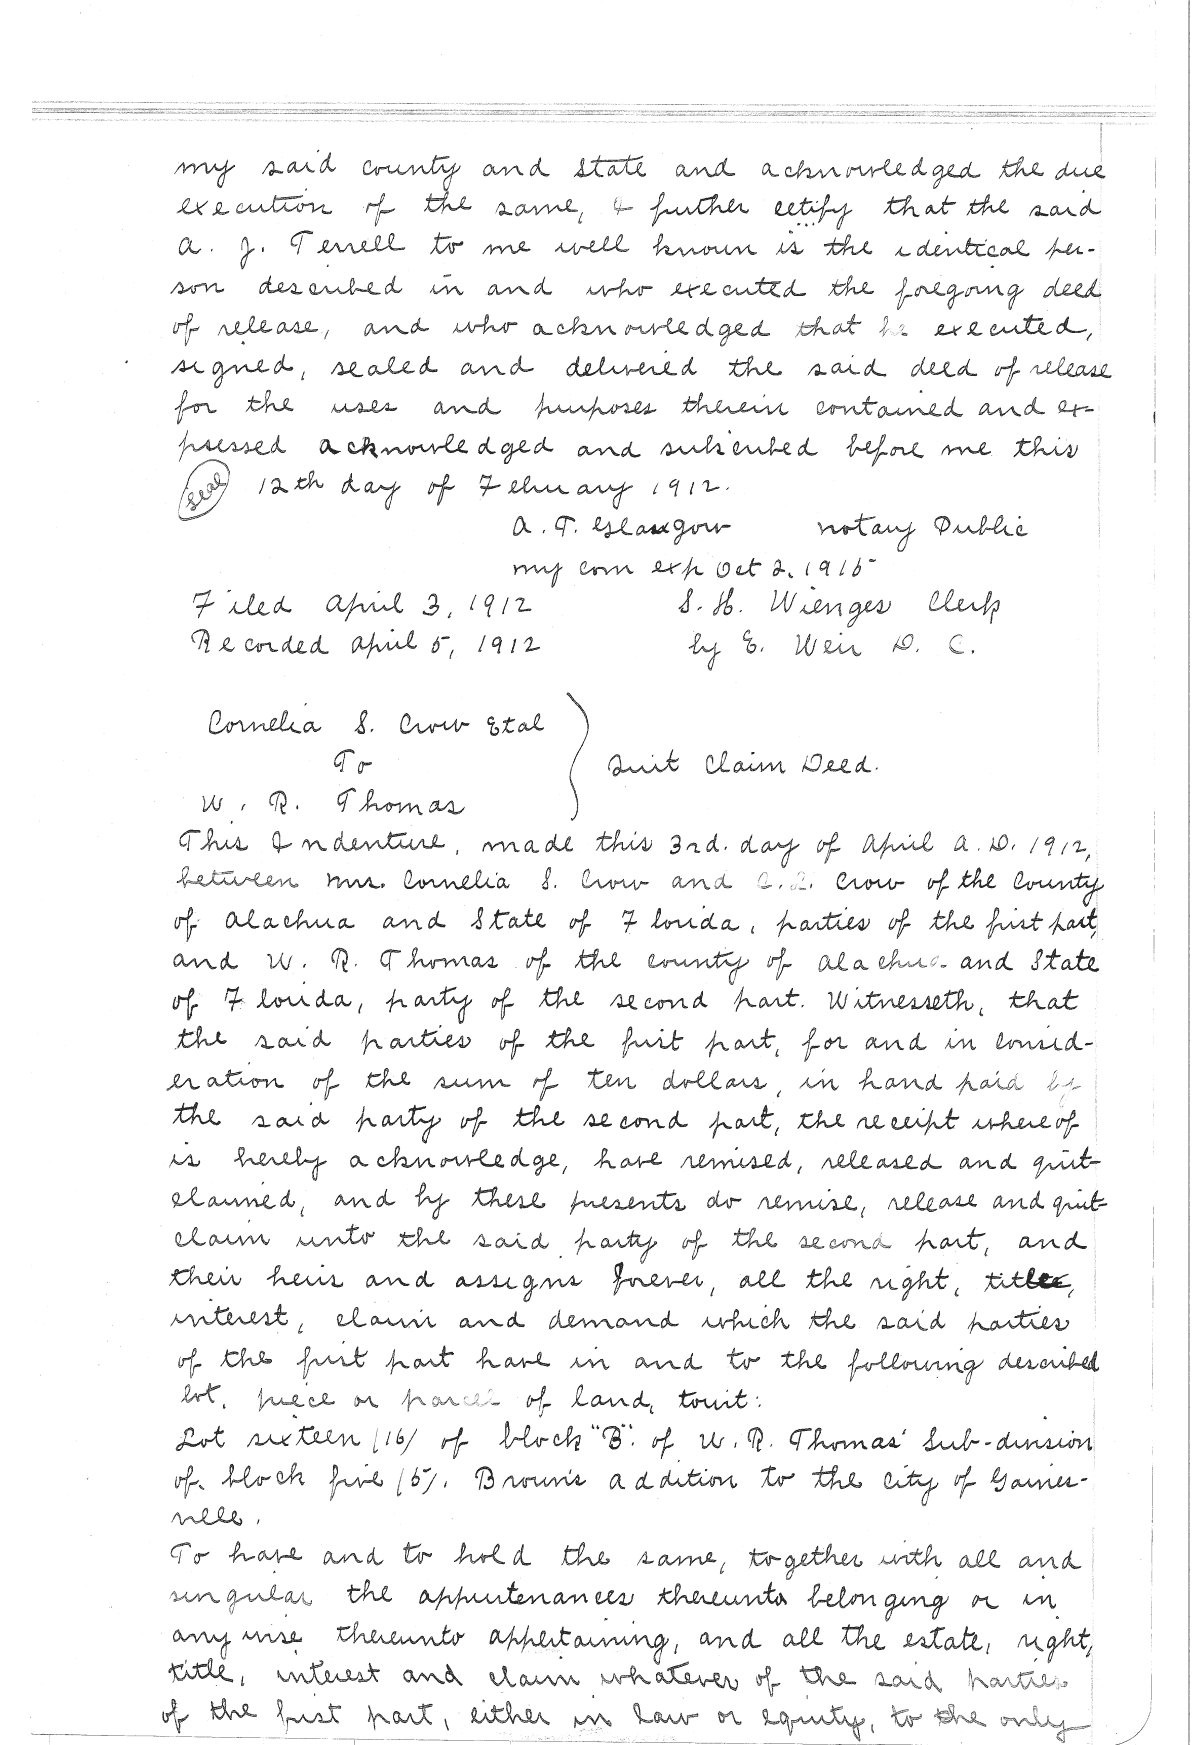 my said county and State and acknowledged the due
execution of the same, & further cetify that the said
A. J. Terrell to me well known is the identical per-
son described in and who executed the foregoing deed
of release, and who acknowledged that he executed,
signed, sealed and delivered the said deed of release
for the uses and purposes therein contained and ex-
pressed acknowledged and subscribed before me this
(Seal) 12th day of February 1912.
A. T. Glasgow notary Public
my com exp Oct 2, 1915
Filed April 3, 1912 S. H. Wienges Clerk
Recorded April 5, 1912 by E. Weir D. C.
Cornelia S. Crow Etal
To
Quit Claim Deed.
W. R. Thomas
This Indenture, made this 3rd. day of April A.D. 1912,
between Mrs. Cornelia S. Crow and Crow of the County
of Alachua and State of Florida, parties of the first part,
and W. R. Thomas of the county of Alachua and State
of Florida, party of the second part. Witnesseth, that
the said parties of the first part, for and in consid-
eration of the sum of ten dollars, in hand paid by
the said party of the second part, the receipt whereof
is hereby acknowledge, have remised, released and quit-
claimed, and by these presents do remise, release and quit-
claim unto the said party of the second part, and
their heirs and assigns forever, all the right, title,
interest, claim and demand which the said parties
of the first part have in and to the following described
lot, piece or parcel of land, towit:
Lot sixteen (16) of block "B". of W. R. Thomas' Sub-division
of. block five (5). Brown's addition to the City of Gaines-
ville.
To have and to hold the same, together with all and
singular the appurtenances thereunto belonging or in
any wise thereunto appertaining, and all the estate, right,
title, interest and claim whatever of the said parties
of the first part, either in law or equity, to the only